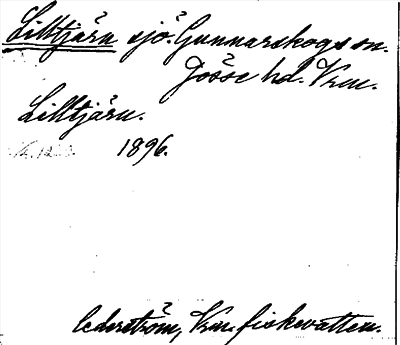 Lilltjärn sjö. Gunnarskogs sn.
Jösse hd. Vrm.
Lilltjärn.
1896.
Cederström, Vrm. fiskevatten.